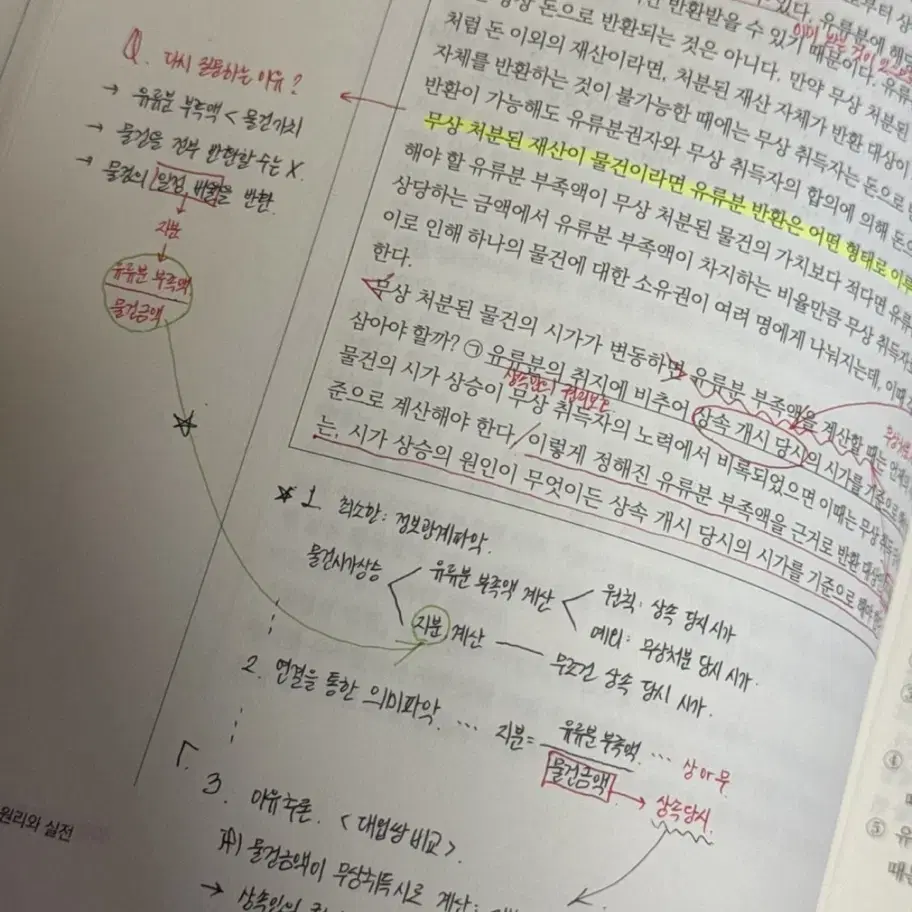 Q. 다시 질문하는 이유?
→ 유류분 부족액 < 물건가치
→ 물건을 전부 반환할 수는 X.
→ 물건의 일정 비율을 반환.
지분
유류분 부족액
물건금액
있다. 유류분에 해당
정상 돈으로 반환되는 것은 아니다. 만약 무상 처분된
처럼 돈 이외의 재산이라면, 처분된 재산 자체가 반환 대상이
자체를 반환하는 것이 불가능한 때에는 무상 취득자는 돈으로
반환이 가능해도 유류분권자와 무상 취득자의 합의에 의해 돈으
무상 처분된 재산이 물건이라면 유류분 반환은 어떤 형태로 이루
해야 할 유류분 부족액이 무상 처분된 물건의 가치보다 적다면 유류
상당하는 금액에서 유류분 부족액이 차지하는 비율만큼 무상 취득자
이로 인해 하나의 물건에 대한 소유권이 여러 명에게 나눠지는데, 이때
한다.
무상 처분된 물건의 시가가 변동하면 유류분 부족액을 계산할 때는 언제의
삼아야 할까? ㉠ 유류분의 취지에 비추어 상속 개시 당시의 시가를 기준으로
물건의 시가 상승이 무상 취득자의 노력에서 비롯되었으면 이때는 무상 취득
준으로 계산해야 한다. 이렇게 정해진 유류분 부족액을 근거로 반환 대상
는, 시가 상승의 원인이 무엇이든 상속 개시 당시의 시가를 기준으로 해야
1. 최소한: 정보관계파악.
물건시가상승
유류분 부족액 계산
원칙: 상속 당시 시가
예외: 무상처분 당시 시가.
지분 계산
무조건 상속 당시 시가.
2. 연결을 통한 의미파악. … 지분=
유류분 부족액
… 상 아 무
물건금액 → 상속당시.
3. 이유추론. <대립쌍 비교>.
물건금액이 무상취득시로 계산:
→ 상속인의
원리와 실전
④
⑤ 유
때